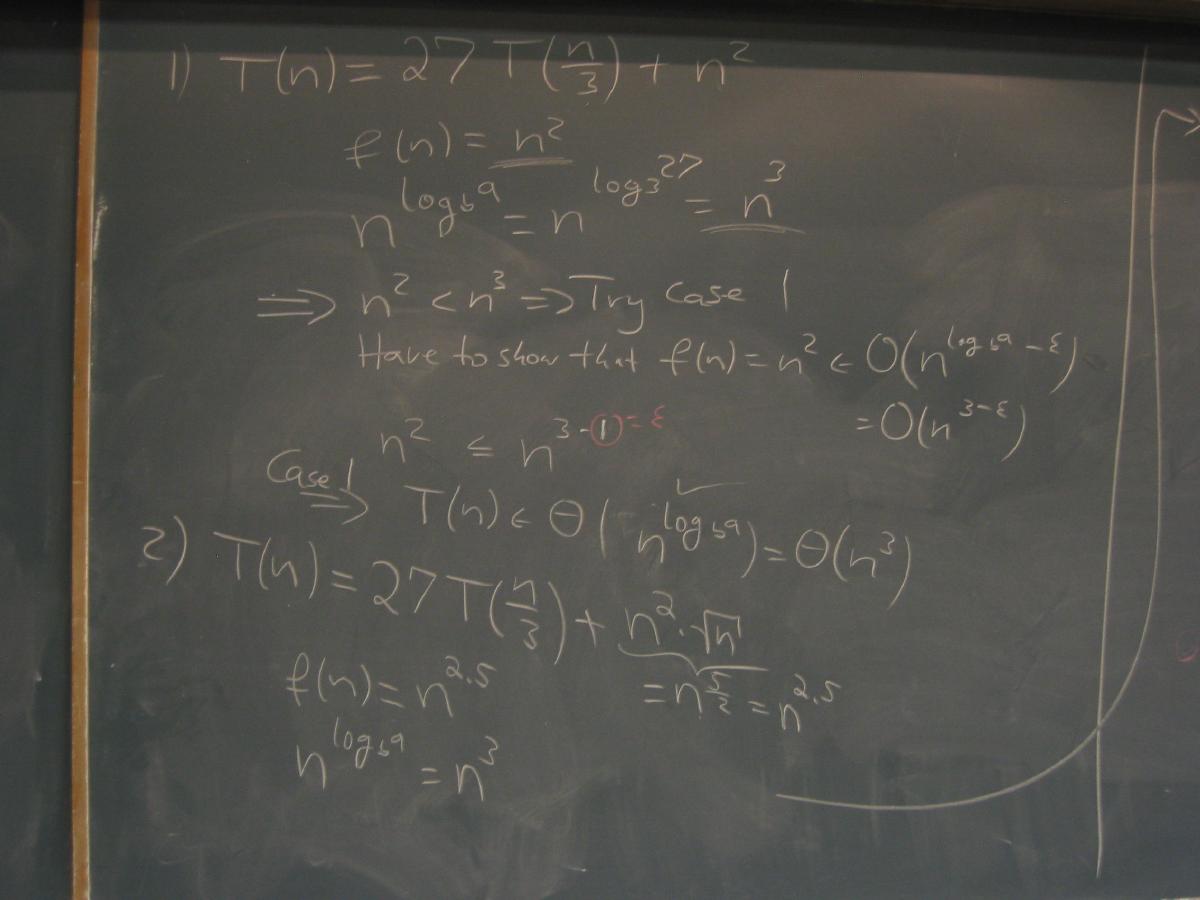 1) T(n) = 27 T(n/3) + n²
f(n) = n²
n^(log_b a) = n^(log_3 27) = n³
⇒ n² < n³ ⇒ Try Case 1
Have to show that f(n) = n² ∈ O(n^(log_b a - ε))
= O(n^(3-ε))
n² ≤ n^(3-1) = ε
Case 1 ⇒ T(n) ∈ Θ(n^(log_b a)) = Θ(n³)
2) T(n) = 27 T(n/3) + n² · √n
f(n) = n^2.5 = n^(5/2) = n^2.5
n^(log_b a) = n³